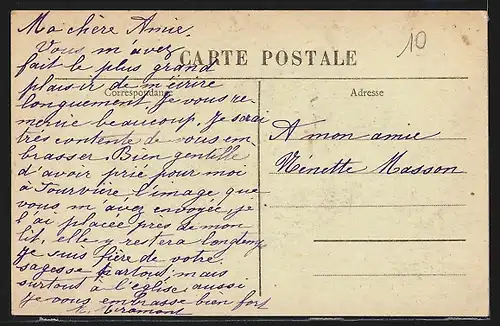 Ma chère Amie.
Vous m'avez
fait le plus grand
plaisir de m'écrire
longuement, je vous re-
mercie beaucoup, je serai
très contente de vous em-
brasser. Bien gentille
d'avoir prié pour moi
à Fourvière l'image que
vous m'avez envoyée je
l'ai placée près de mon
lit, elle y restera longtemps
Je suis fière de votre
sagesse partout, mais
surtout à l'église aussi
je vous embrasse bien fort
Miramont
CARTE POSTALE
Correspondance
Adresse
10
A mon amie
Nénette Masson